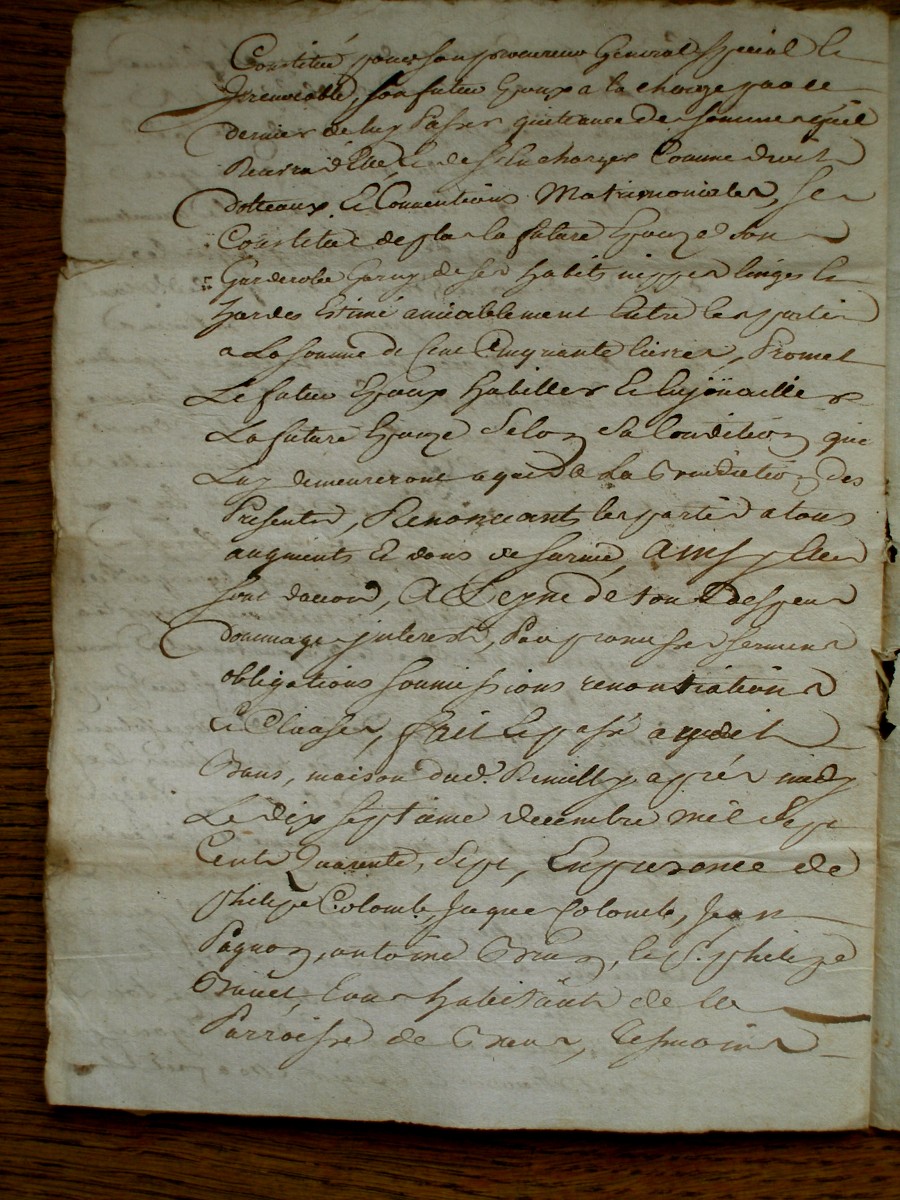 Constitué pour son procureur General special &
Irrevocable, son futur Epoux a la charge par ce
dernier de luy Passer quittance des sommes quil
Recevra d'Elle & de s'En charger Comme droits
dotteaux & Conventions Matrimonialles, se
Constitue de plus la future Epouze son
Garderobe Garny de ses habits nippes linges &
hardes Estimé amiablement Entre les parties
a La somme de Cent Cinquante livres, Promet
Le futur Epoux habiller & Enjouailler
La future Epouze Selon sa Condition qui
Luy demeureront acquis a La des
Presentes, Renonceants les parties a tous
augments & dons de survie, Ainsy Elles
sont daccord, A Peyne de tous despens
dommages interest, Par promesses sermens
obligations soumissions renontiations
& Clauses, fait & passé audit
maison dud. Remilly après midy
Le dix septieme decembre mil Sept
Cents Quarente, Sept, En presence de
philipe Colomb, Jaque Colomb, Jean
Pagnon, antoine & Sr. philipe
tous habitants de la
Parroisse de tesmoins